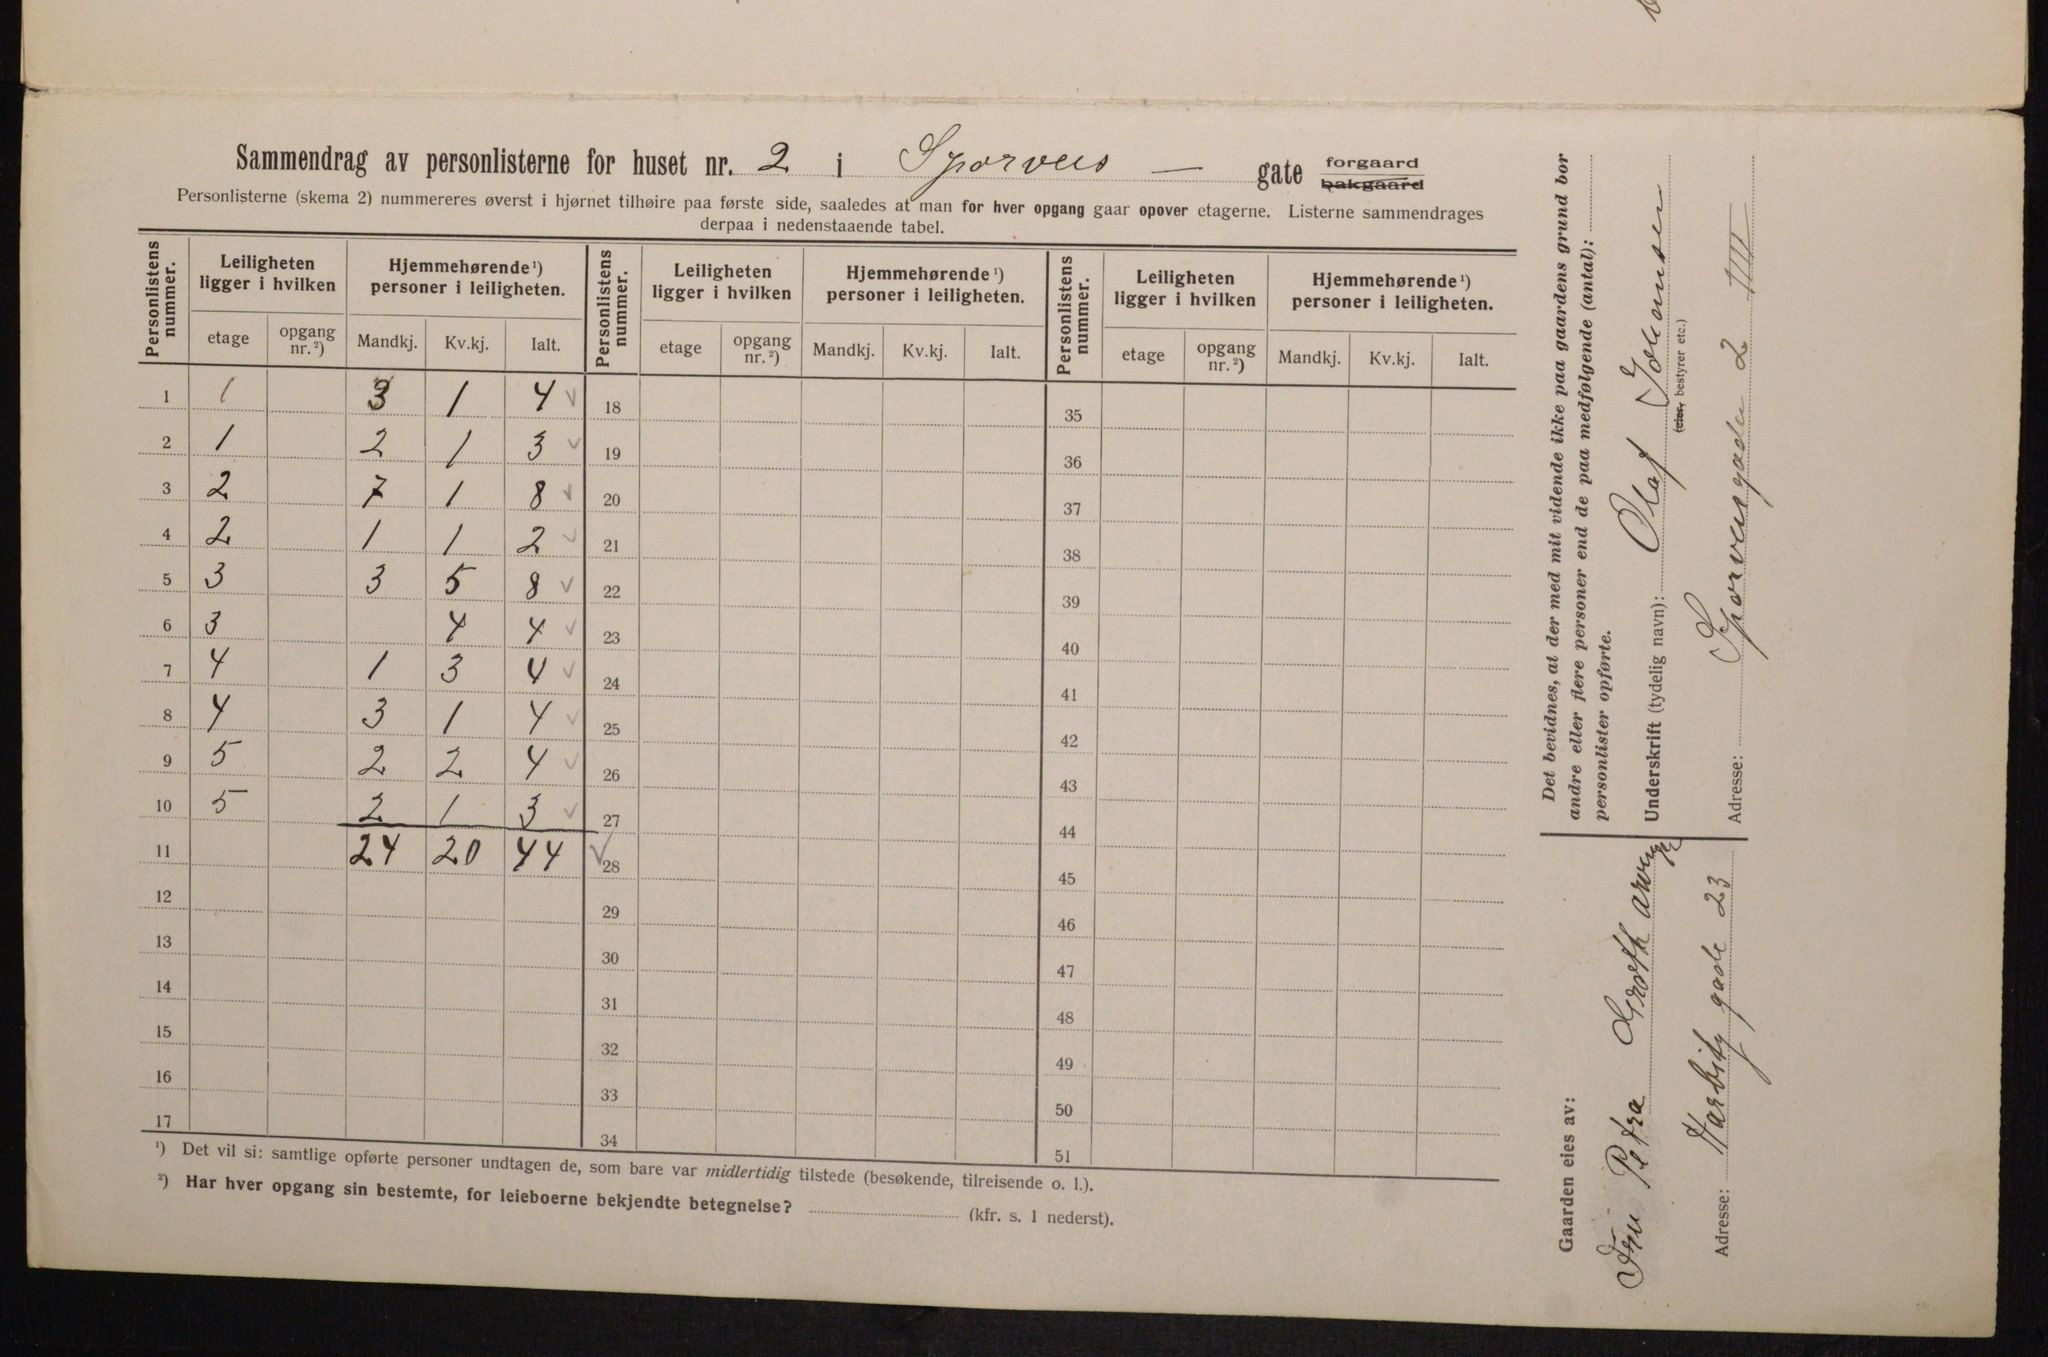 Sammendrag av personlisterne for huset nr. 2 i Sporveis — gate forgaard bakgaard
Personlisterne (skema 2) nummereres øverst i hjørnet tilhøire paa første side, saaledes at man for hver opgang gaar opover etagerne. Listerne sammendrages
derpaa i nedenstaaende tabel.
Personlistens nummer. Leiligheten ligger i hvilken Hjemmehørende ¹) personer i leiligheten. Personlistens nummer. Leiligheten ligger i hvilken Hjemmehørende ¹) personer i leiligheten. Personlistens nummer. Leiligheten ligger i hvilken Hjemmehørende ¹) personer i leiligheten.
etage opgang nr. ²) Mandkj. Kv.kj. Ialt. etage opgang nr. ²) Mandkj. Kv.kj. Ialt. etage opgang nr. ²) Mandkj. Kv.kj. Ialt.
1 1 3 1 4 18 35
2 1 2 1 3 19 36
3 2 7 1 8 20 37
4 2 1 1 2 21 38
5 3 3 5 8 22 39
6 3 4 4 23 40
7 4 1 3 4 24 41
8 4 3 1 4 25 42
9 5 2 2 4 26 43
10 5 2 1 3 27 44
11 24 20 44 28 45
12 29 46
13 30 47
14 31 48
15 32 49
16 33 50
17 34 51
¹) Det vil si: samtlige opførte personer undtagen de, som bare var midlertidig tilstede (besøkende, tilreisende o. l.).
²) Har hver opgang sin bestemte, for leieboerne bekjendte betegnelse? (kfr. s. 1 nederst).
Det bevidnes, at der med mit vidende ikke paa gaardens grund bor
andre eller flere personer end de paa medfølgende (antal):
personlister opførte.
Underskrift (tydelig navn): Olaf Johansen
(eier, bestyrer etc.)
Adresse: Sporveisgade 2 IIII
Gaarden eies av:
Fru Petra Groth
Adresse: Harbitz gade 23